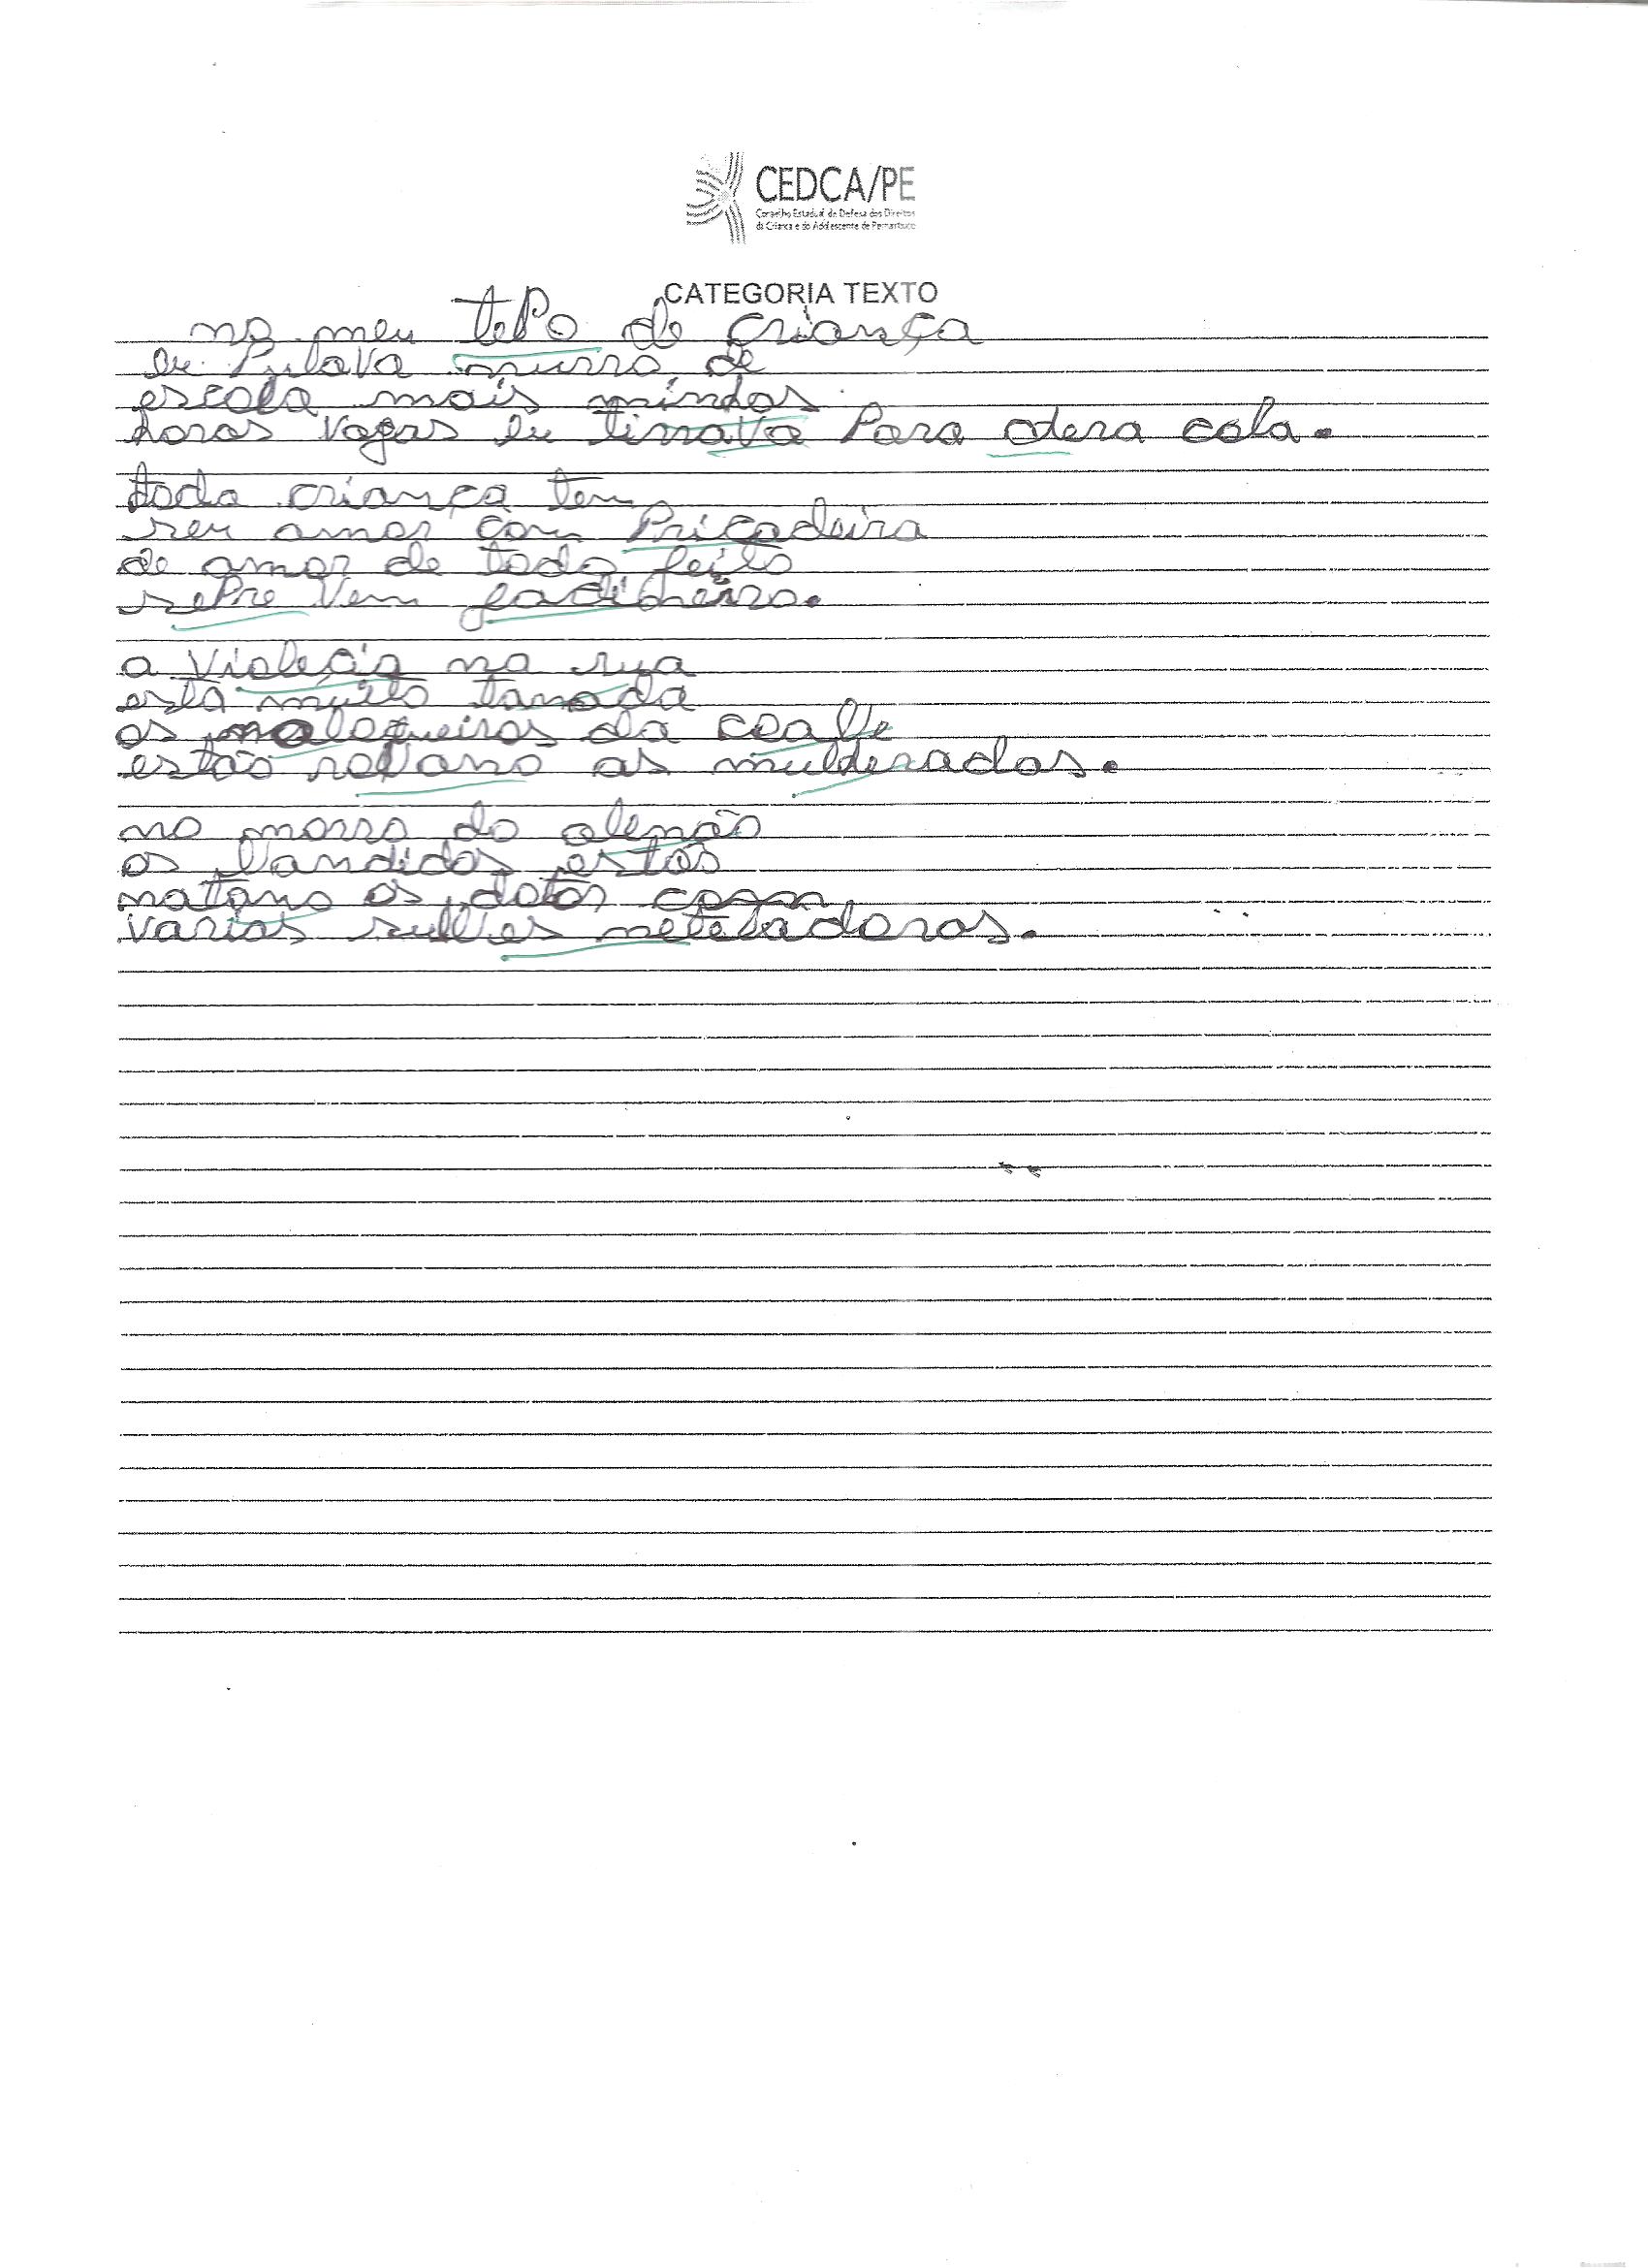 CEDCA/PE
Conselho Estadual de Defesa dos Direitos
da Criança e do Adolescente de Pernambuco
CATEGORIA TEXTO
no meu tePo de criança
eu Pulava murro de
escola mais minhas
horas vagas eu tirrava Para dera cola.
toda criança tem
seu amor com Pricadeira
de amor de todo feito
sePre vem
a violeçia na rua
esta muito tanada
os maloqueiros da
estão robano as mulheradas.
no morro do alemão
os bandidos estão
matano os dotor com
varias metelhadoras.